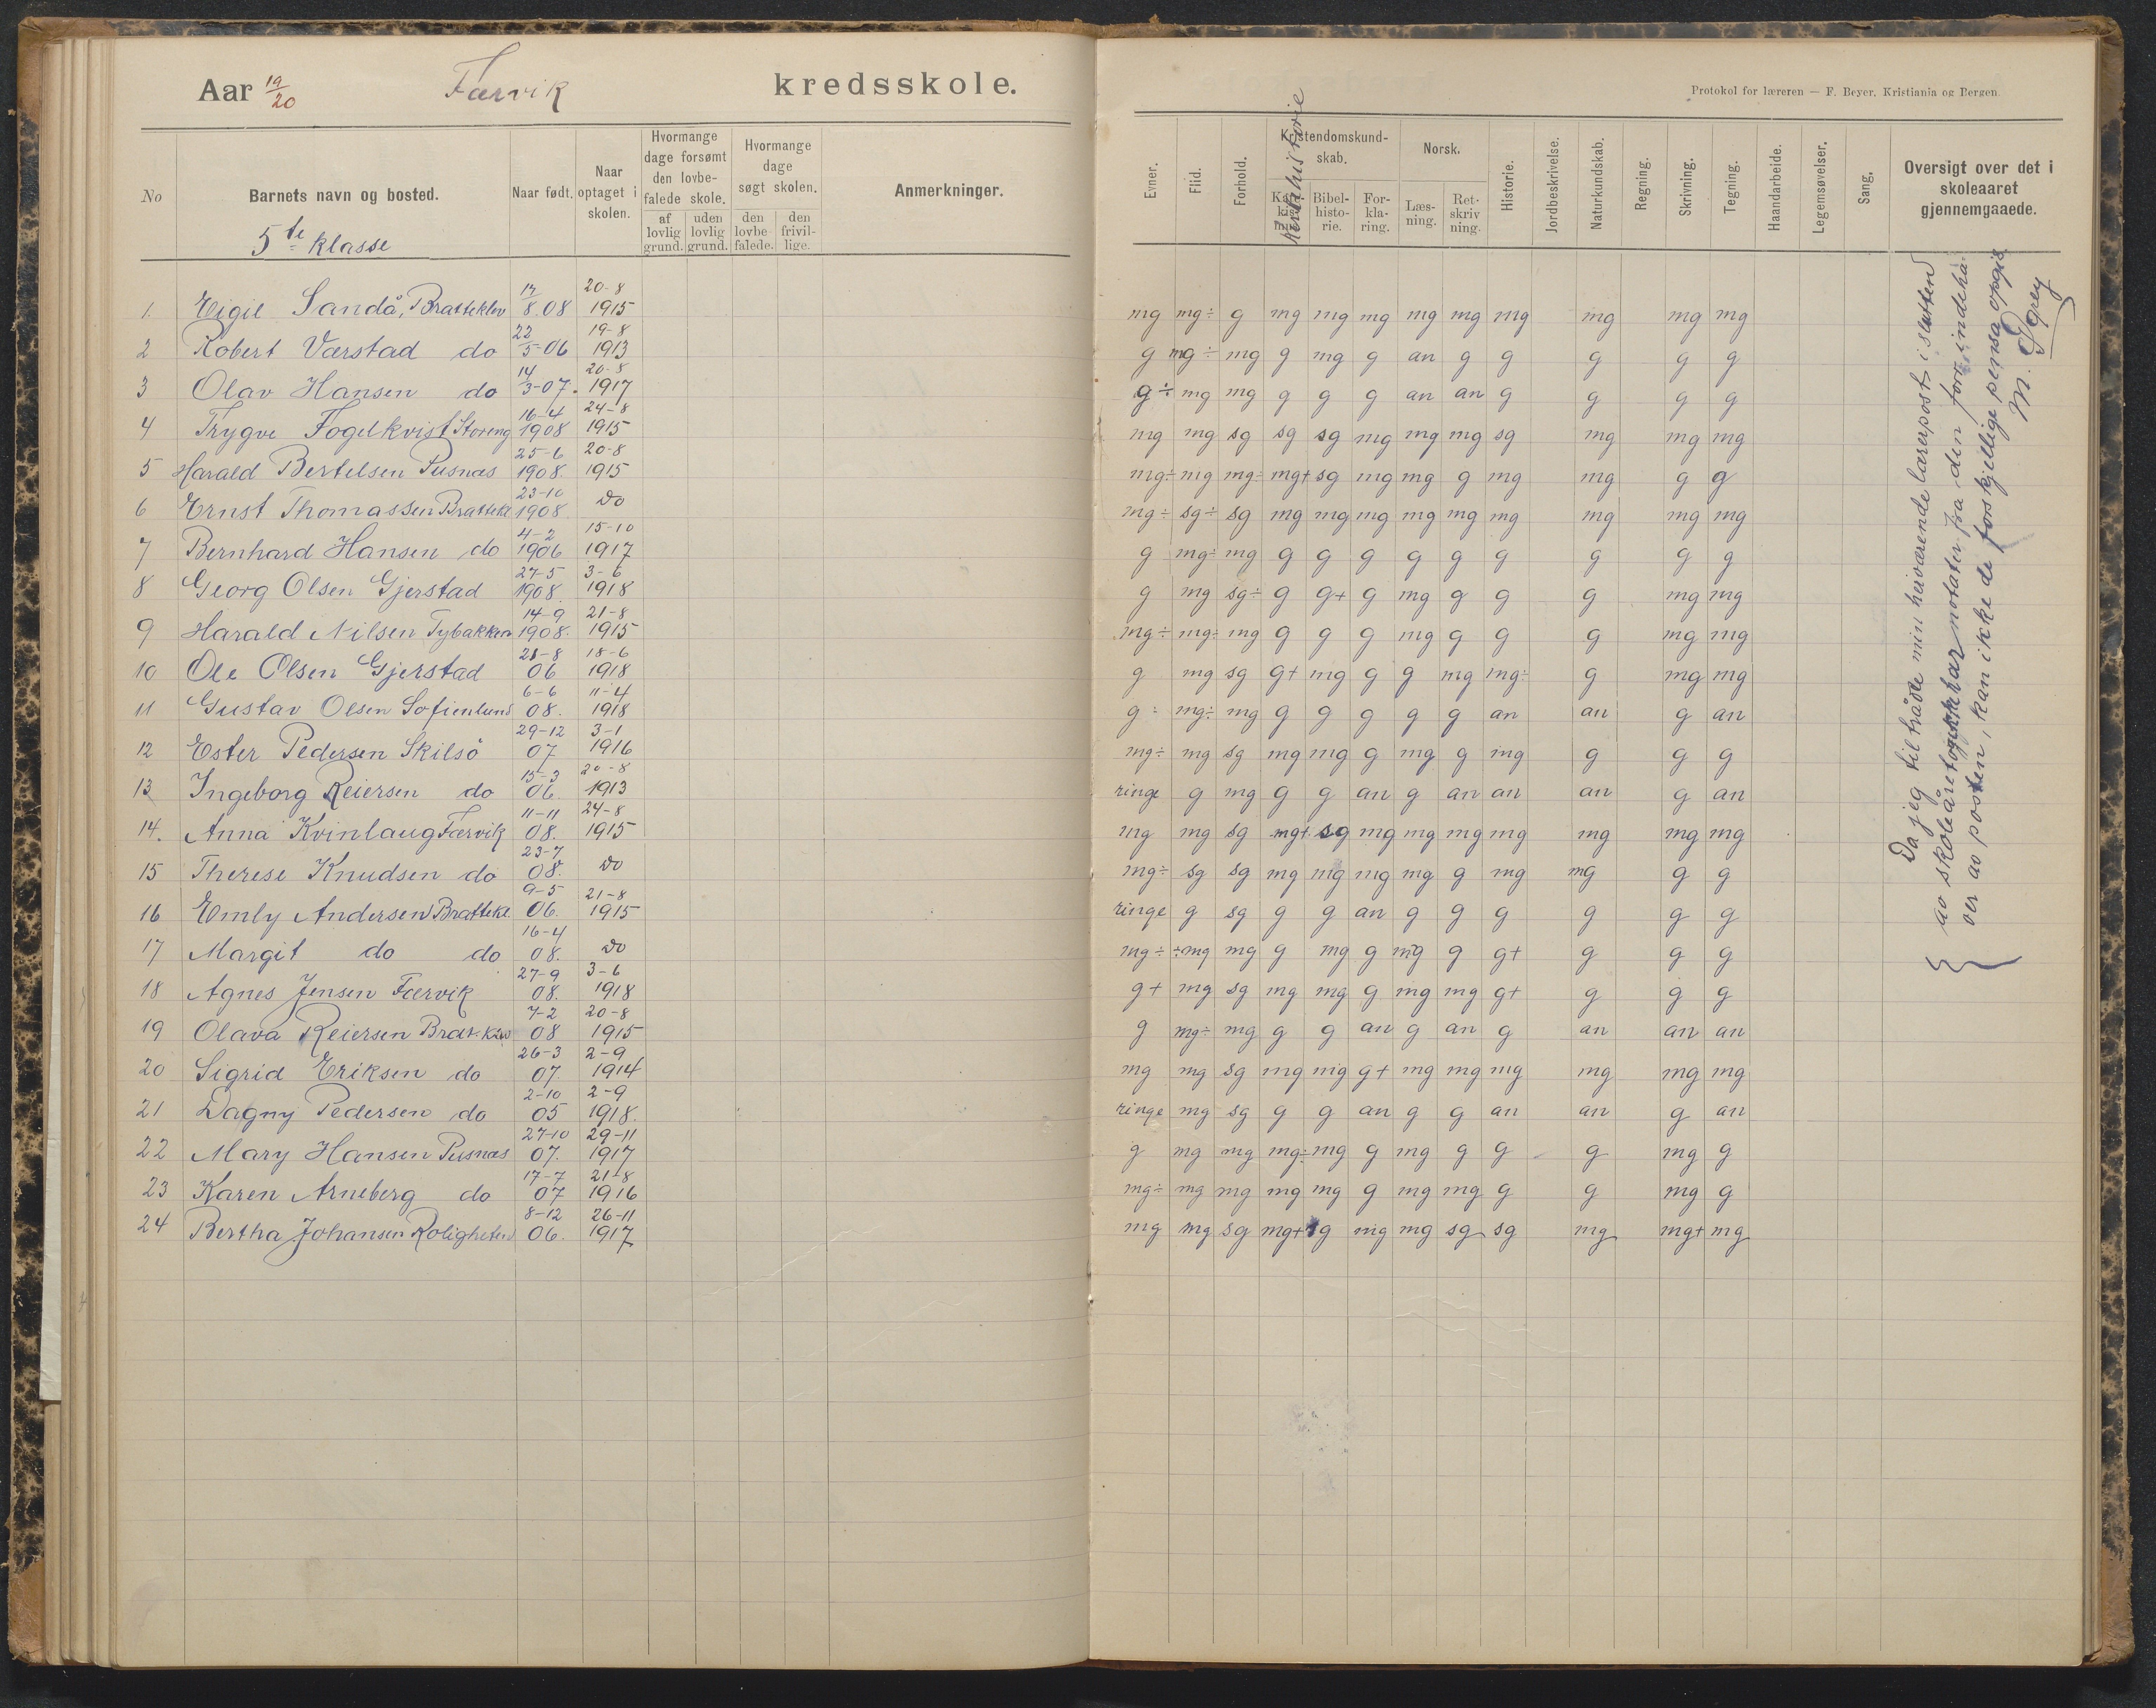 Aar 19/20 Færvik kredsskole.
No Barnets navn og bosted. Naar født. Naar optaget i skolen. Hvormange dage forsømt den lovbefalede skole. af lovlig grund. uden lovlig grund. Hvormange dage søgt skolen. den lovbefalede. den frivillige. Anmerkninger.
5te klasse
1. Eigil Sandå, Bratteklev 17/8.08 20-8 1915
2 Robert Værstad do 22/5-06 19-8 1913
3 Olav Hansen do 14/3-07. 20-8 1917
4 Trygve Fogelkvist Storeng 16-4 1908 24-8 1915
5 Harald Bertelsen Pusnæs 25-6 1908. 20-8 1915
6 Ernst Thomassen Brattekl 23-10 1908 do
7 Bernhard Hansen do 4-2 1906 15-10 1917
8 Georg Olsen Gjerstad 27-5 1908. 3-6 1918
9 Harald Nilsen Tybakken 14-9 1908. 21-8 1915
10 Ole Olsen Gjerstad 21-8 06 18-6 1918
11 Gustav Olsen Sofienlund 6-6 08. 11-4 1918
12 Ester Pedersen Skilsö 29-12 07 3-1 1916
13 Ingeborg Reiersen do 15-3 06. 20-8 1913
14. Anna Kvinlaug Færvik 11-11 08. 24-8 1915
15 Therese Knudsen do 23-7 08. do
16 Emly Andersen Brattekl. 9-5 06. 21-8 1915
17 Margit do do 16-4 08. do
18 Agnes Jensen Færvik 27-9 08. 3-6 1918
19 Olava Reiersen Brat.klev 7-2 08 20-8 1915
20 Sigrid Eriksen do 26-3 07 2-9 1914
21 Dagny Pedersen do 2-10 05 2-9 1918.
22 Mary Hansen Pusnæs 27-10 07. 29-11 1917
23 Karen Arneberg do 17-7 07 21-8 1916
24 Bertha Johansen Roligheten 8-12 06. 26-11 1917
Protokol for læreren — F. Beyer, Kristiania og Bergen.
Evner. Flid. Forhold. Kristendomskundskab. Kirkehistorie Bibelhistorie. Forklaring. Norsk. Læsning. Retskrivning. Historie. Jordbeskrivelse. Naturkundskab. Regning. Skrivning. Tegning. Haandarbeide. Legemsøvelser. Sang. Oversigt over det i skoleaaret gjennemgaaede.
mg mg÷ g mg mg mg mg mg mg mg mg mg
g mg÷ mg g mg g an g g g g g
g÷ mg mg g g g an an g g g g
mg mg sg sg sg mg mg mg sg mg mg mg
mg÷ mg mg÷ mg+ sg mg mg g mg mg g g
mg÷ sg÷ sg mg mg mg mg mg mg mg mg mg
g mg÷ mg g g g g g g g g g
g mg sg÷ g g+ g mg g g g mg mg
mg÷ mg÷ mg g g g mg g g g mg mg
g mg sg g+ mg g g mg mg÷ g mg mg
g÷ mg÷ mg g g g g g an an g an
mg÷ mg sg mg mg g mg g mg g g g
ringe g mg g g an g an an an g an
mg mg sg mg+ sg mg mg mg mg mg mg mg
mg÷ sg sg mg mg mg mg g mg mg g g
ringe g sg g g an g g g g g g
mg÷ ÷mg mg g mg g mg g g+ g g g
g+ mg sg mg mg g mg mg g+ g g g
g mg÷ mg g g an g an g an an an
mg mg sg mg mg g+ mg mg mg mg mg mg
ringe mg sg g g an g g an an g an
g mg mg mg÷ mg g mg g g - g mg g
mg÷ mg mg mg mg g mg mg g g mg g
mg mg sg mg+ sg mg mg sg sg mg mg+ mg
Da jeg tiltrådte min heiværende lærerpost i slutten
av skoleåret og ikke har notater fra den forr. indeha-
ver av posten, kan ikke de forskjellige pensa opgis.